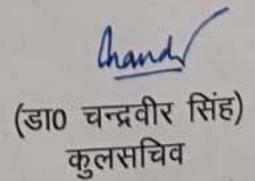 Chand
(डा0 चन्द्रवीर सिंह)
कुलसचिव